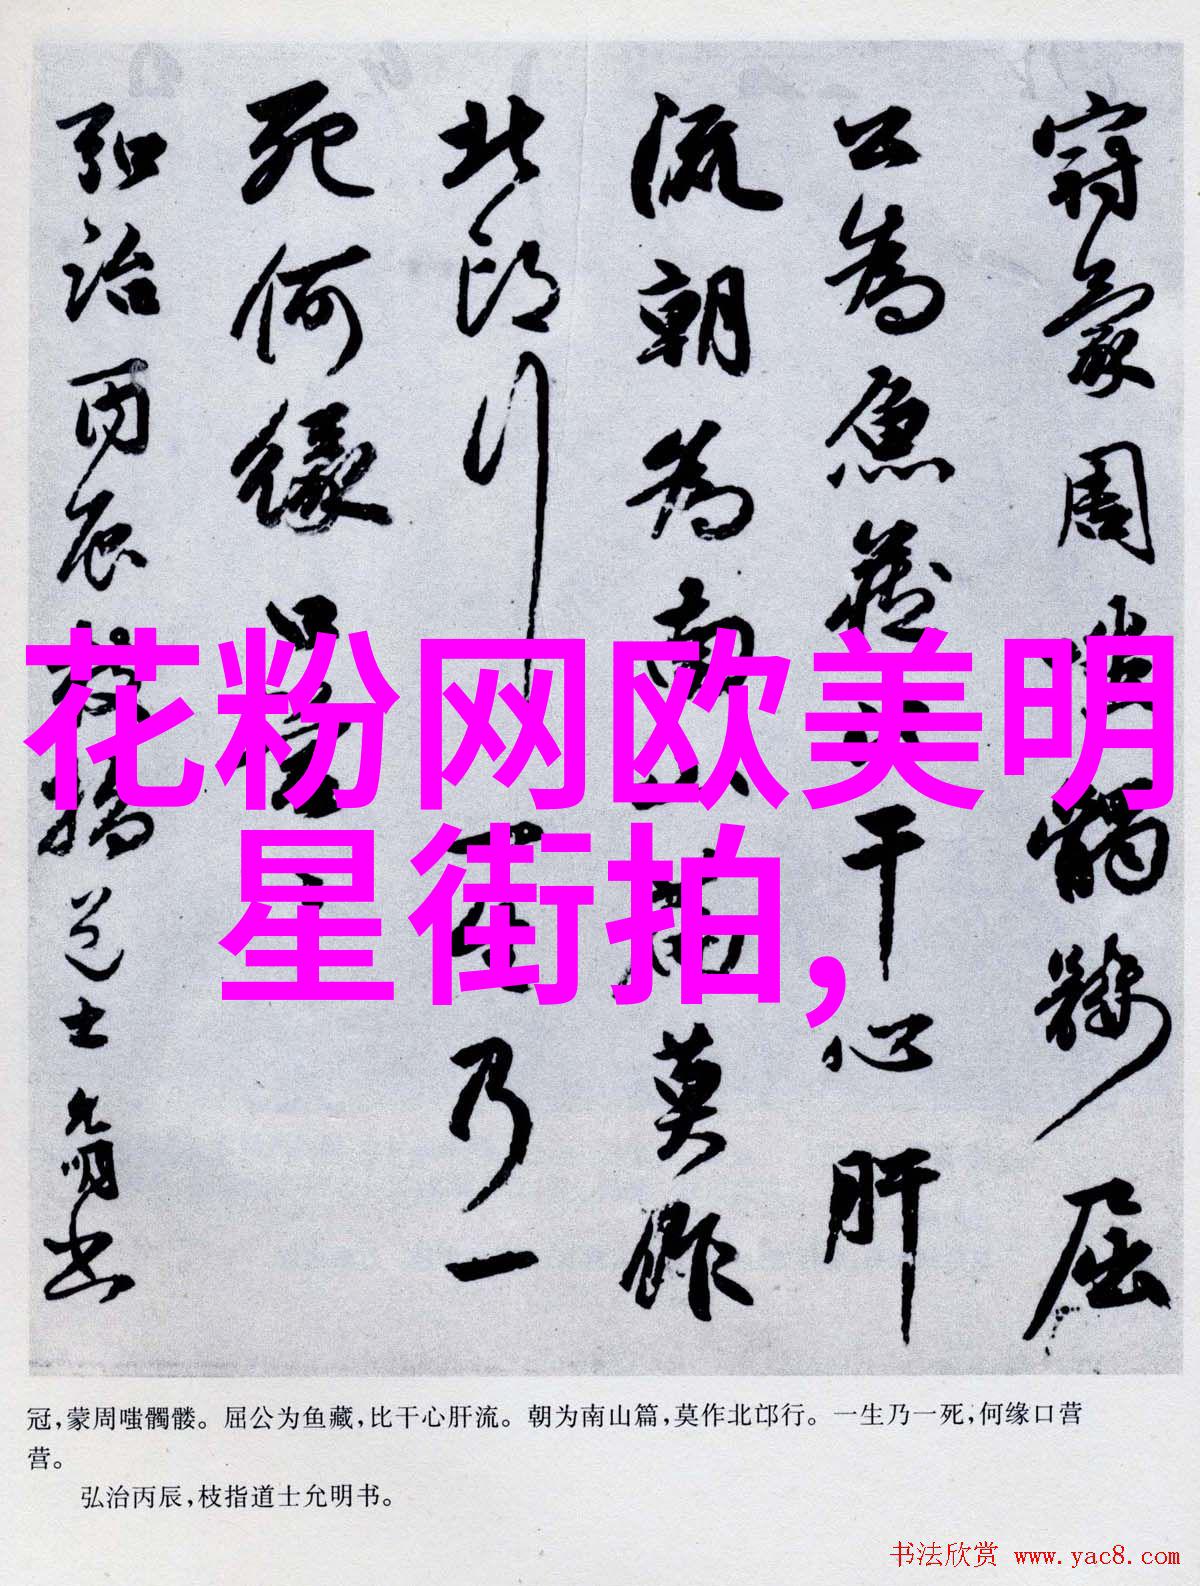 冠蒙周嗤髑髏屈
公為魚藏比干心肝
流朝為南山篇莫作
北邙行一生乃一
死何緣口營營
弘治丙辰枝指道士允明書
花粉网欧美明
星街拍,
冠,蒙周嗤髑髅。屈公为鱼藏,比干心肝流。朝为南山篇,莫作北邙行。一生乃一死,何缘口营
营。
弘治丙辰,枝指道士允明书。
书法欣赏 www.yac8.com